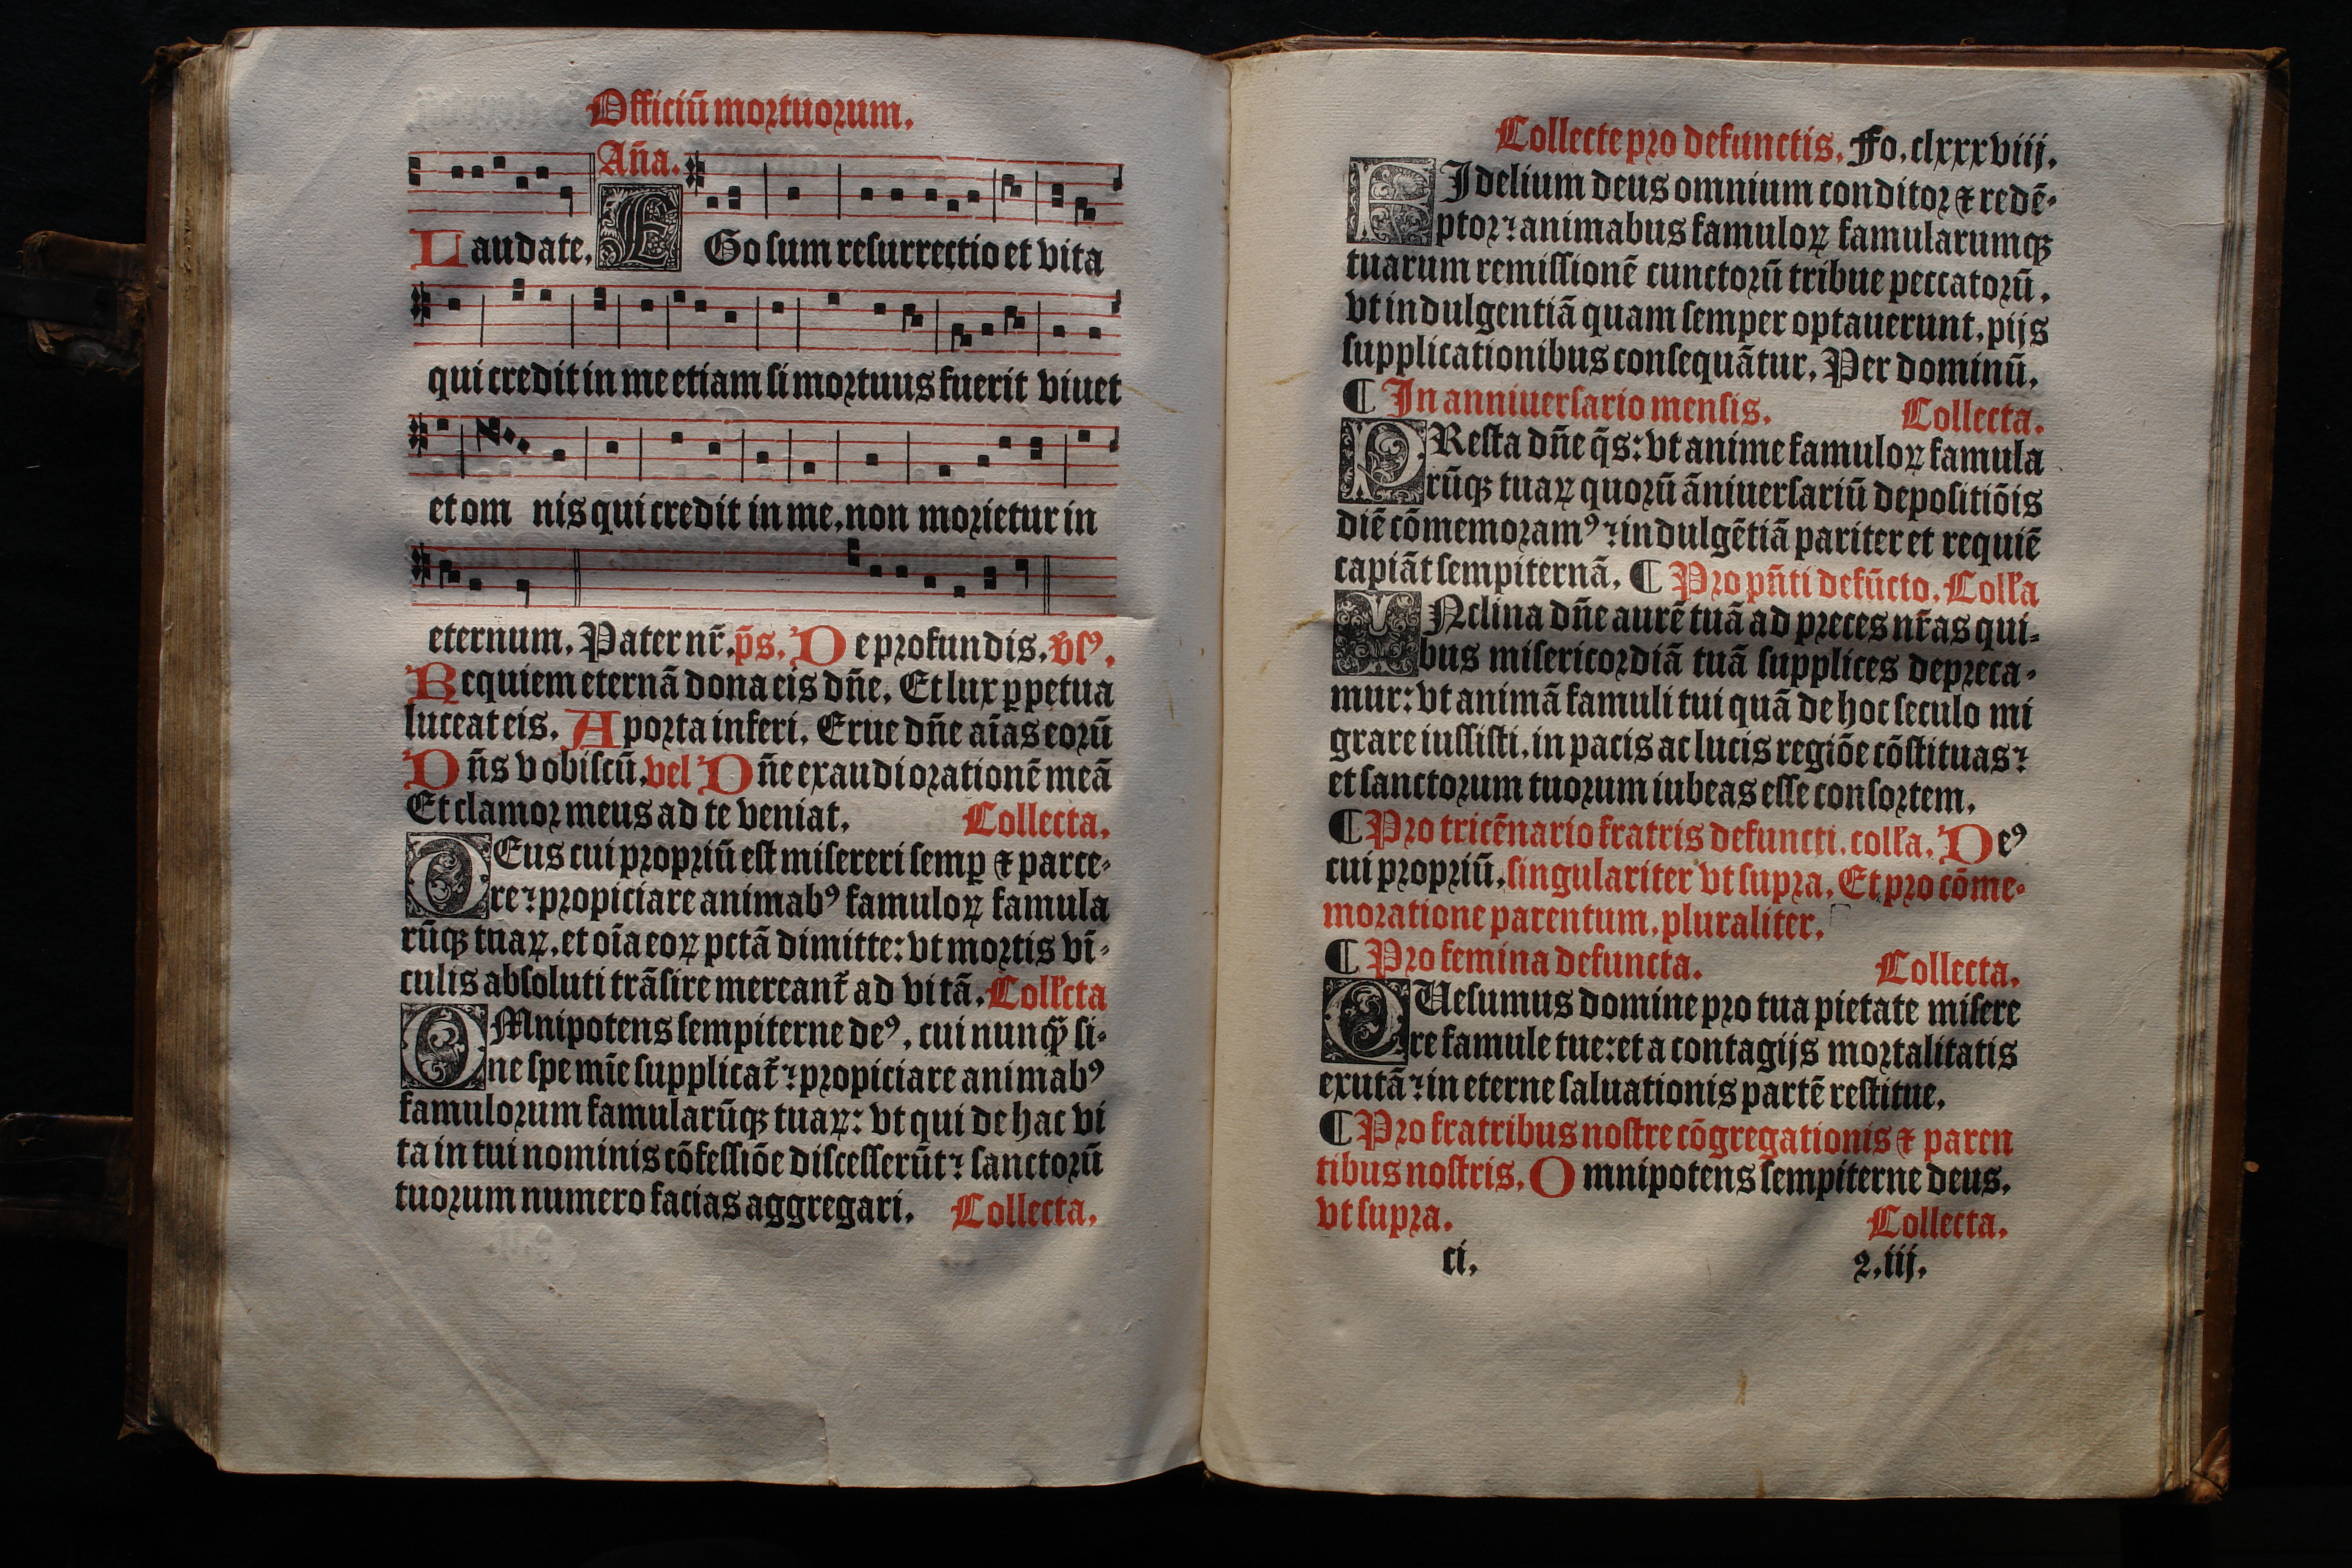 Officiū mortuorum.
Aña.
Laudate. EGo sum resurrectio et vita
qui credit in me etiam si mortuus fuerit viuet
et om nis qui credit in me, non morietur in
eternum. Pater nr̄. p̄s. De profundis. v̄sꝰ.
Requiem eternā dona eis dn̄e. Et lux ꝑpetua
luceat eis. A porta inferi. Erue dn̄e aīas eorū
Dn̄s vobiscū. vel Dn̄e exaudi orationē meā
Et clamor meus ad te veniat. Collecta.
DEus cui propriū est misereri semꝑ ⁊ parce-
re: propiciare animabꝰ famuloꝝ famula
rūqꝫ tuaꝝ. et oīa eoꝝ pctā dimitte: vt mortis vī-
culis absoluti trāsire mereant̄ ad vitā. Coll̄cta
OMnipotens sempiterne deꝰ, cui nunqꝫ̄ si-
ne spe mīe supplicat̄: propiciare animabꝰ
famulorum famularūqꝫ tuaꝝ: vt qui de hac vi
ta in tui nominis cōfessiōe discesserūt: sanctorū
tuorum numero facias aggregari. Collecta.
Collecte pro defunctis. Fo. clxxxviij.
FIdelium deus omnium conditor ⁊ redē-
ptor: animabus famuloꝝ famularumqꝫ
tuarum remissionē cunctorū tribue peccatorū.
vt indulgentiā quam semper optauerunt. pijs
supplicationibus consequātur. Per dominū.
¶ In anniuersario mensis. Collecta.
PResta dn̄e q̄s: vt anime famuloꝝ famula
rūqꝫ tuaꝝ quorū āniuersariū depositiōis
diē cōmemoramꝰ: indulgētiā pariter et requiē
capiāt sempiternā. ¶ Pro pn̄ti defūcto. Coll̄a
INclina dn̄e aurē tuā ad preces nr̄as qui-
bus misericordiā tuā supplices depreca-
mur: vt animā famuli tui quā de hoc seculo mi
grare iussisti, in pacis ac lucis regiōe cōstituas:
et sanctorum tuorum iubeas esse consortem.
¶ Pro tricēnario fratris defuncti. coll̄a. Deꝰ
cui propriū. singulariter vt supra. Et pro cōme-
moratione parentum. pluraliter.
¶ Pro femina defuncta. Collecta.
QUesumus domine pro tua pietate misere
re famule tue: et a contagijs mortalitatis
exutā: in eterne saluationis partē restitue.
¶ Pro fratribus nostre cōgregationis ⁊ paren
tibus nostris. Omnipotens sempiterne deus.
vt supra. Collecta.
ci. 2.iij.